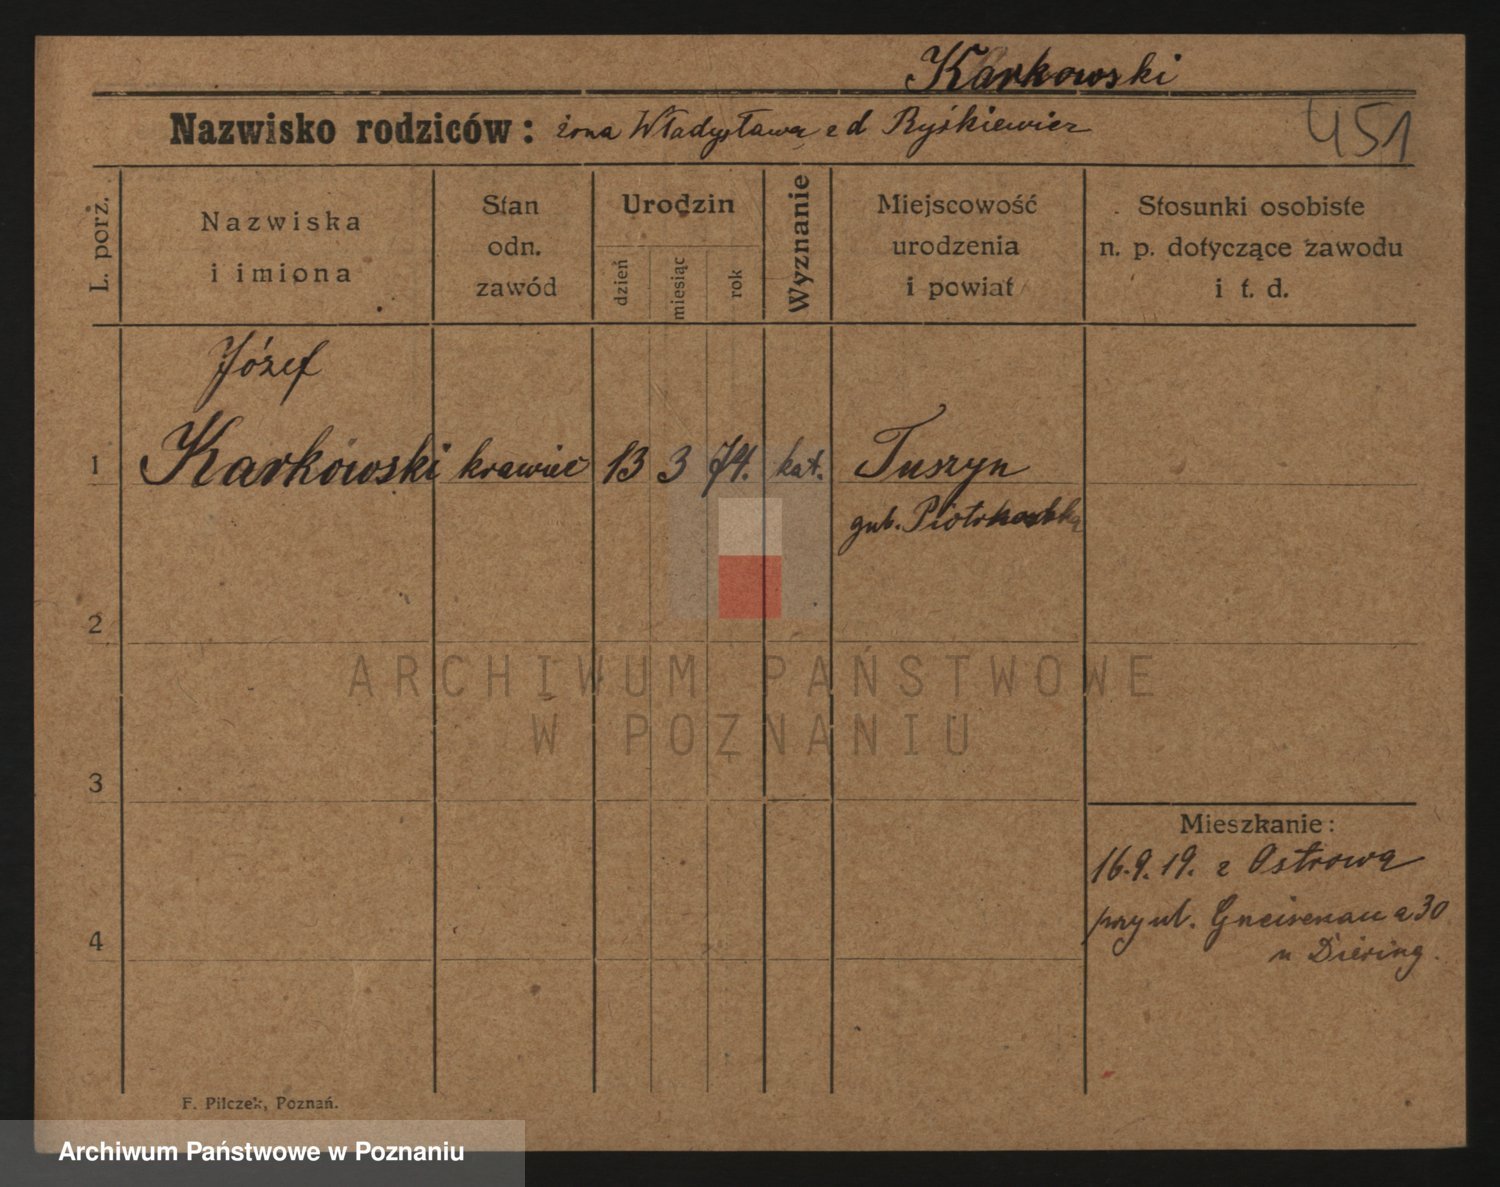 Karkowski
Nazwisko rodziców: żona Władysława z d Ryśkiewicz
451
L. porz.
Nazwiska
i imiona
Stan
odn.
zawód
Urodzin
dzień
miesiąc
rok
Wyznanie
Miejscowość
urodzenia
i powiat
Stosunki osobiste
n. p. dotyczące zawodu
i t. d.
Józef
1 Karkowski krawiec 13 3 74. kat. Tuszyn
gub. Piotrkowska
2
ARCHIWUM PAŃSTWOWE
W POZNANIU
3
Mieszkanie:
16.9.19. z Ostrowa
przy ul. Gneisenau a 30
u Diering.
4
F. Pilczek, Poznań.
Archiwum Państwowe w Poznaniu